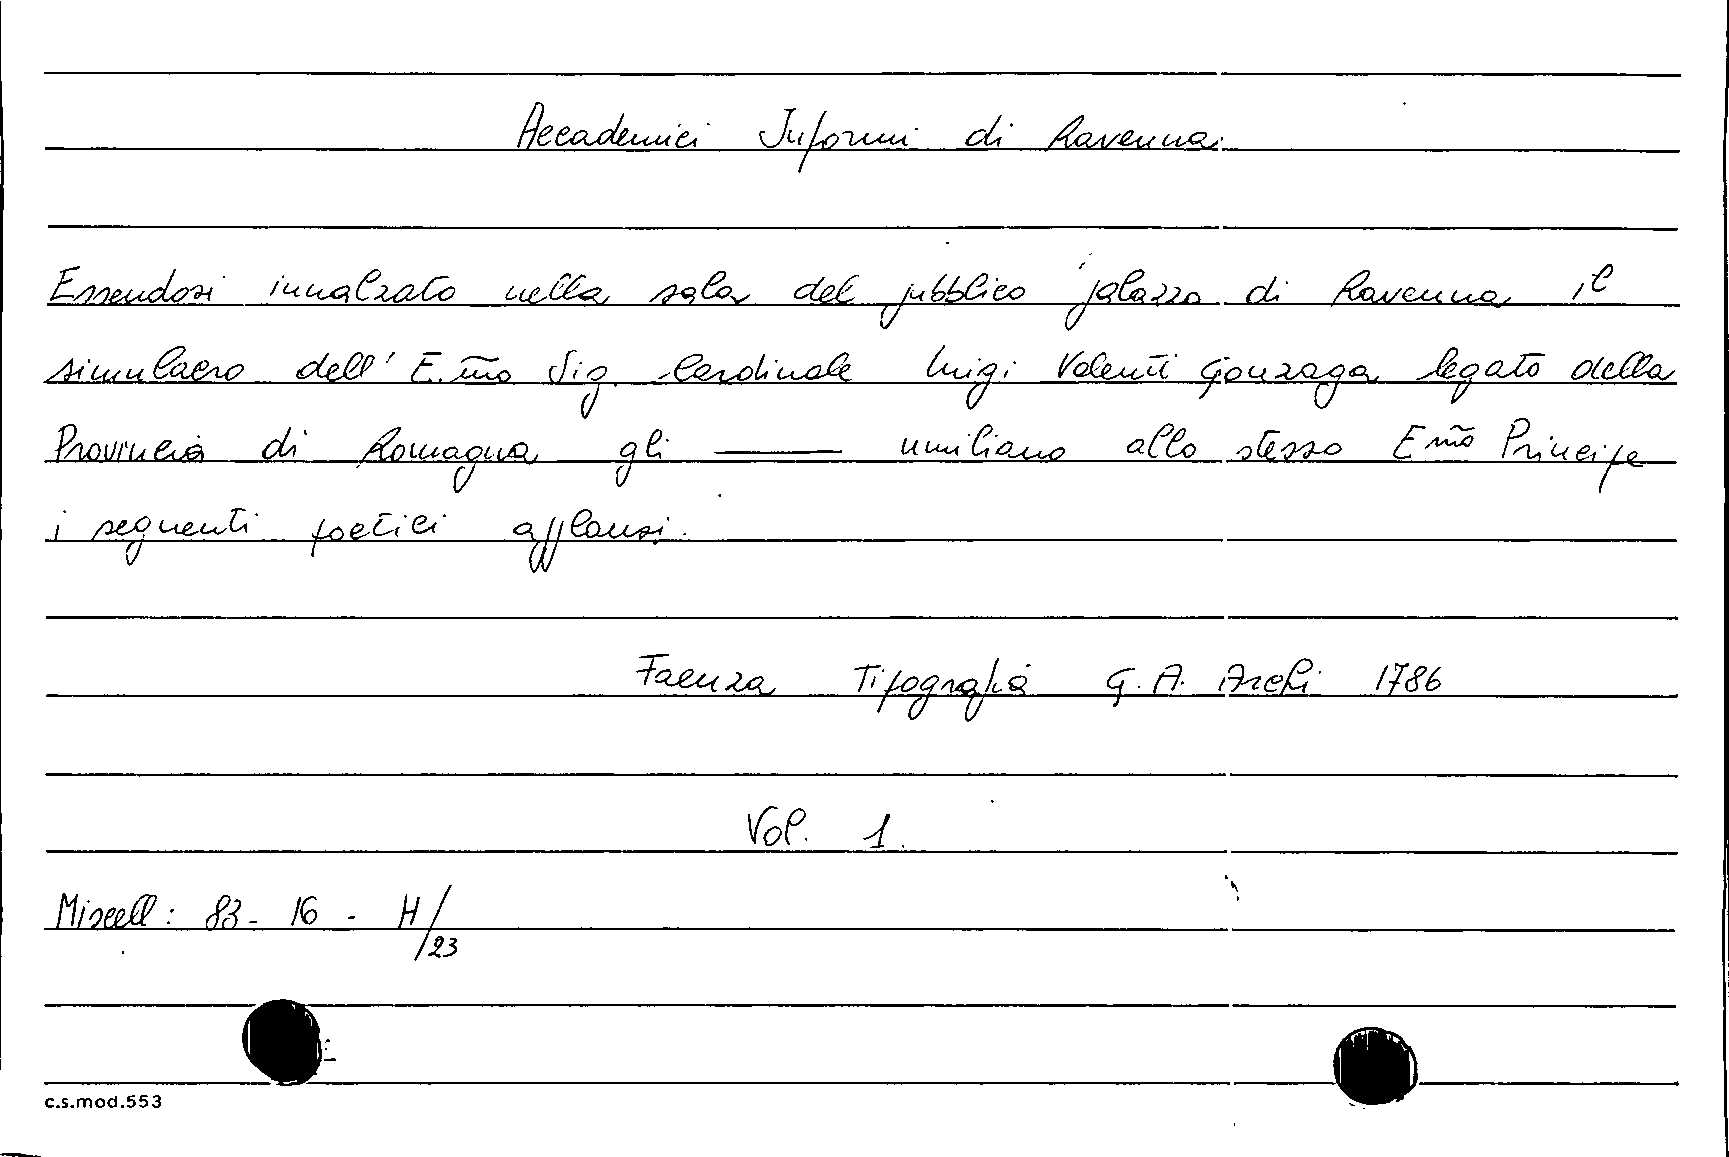 Accademici Informi di Ravenna.
Essendosi innalzato nella sala del pubblico palazzo di Ravenna il
simulacro dell' E.mo Sig. Cardinale Luigi Valenti Gonzaga legato della
Provincia di Romagna gli —— umiliano allo stesso Emo Principe
i seguenti poetici applausi.
Faenza Tipografia G. A. Archi 1786
Vol. 1.
Miscell: 83 - 16 - H/23
c.s.mod.553